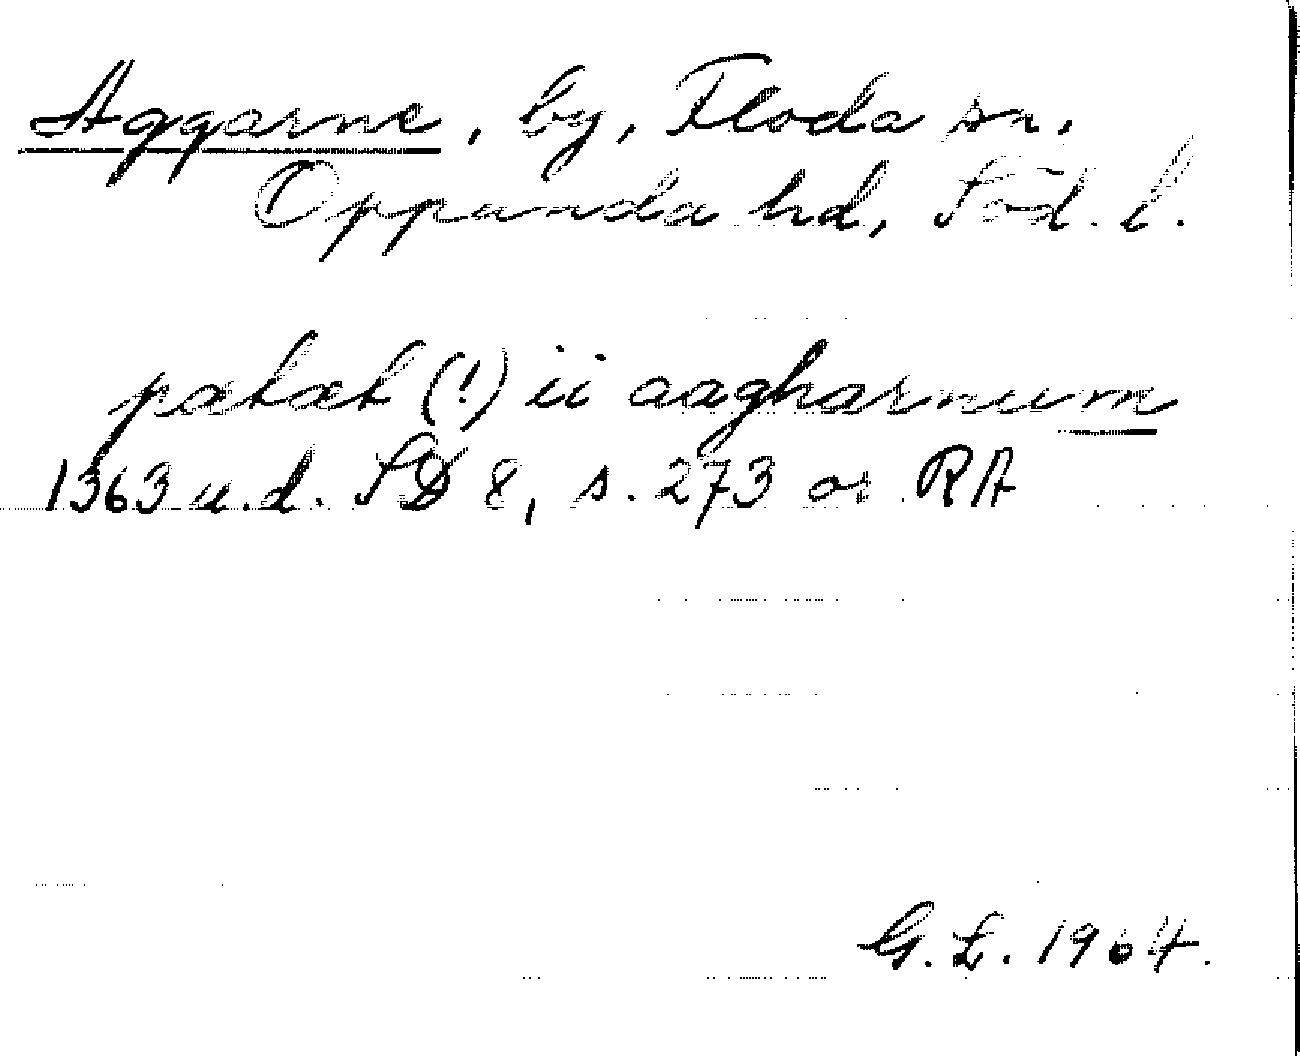 Aggarne, by, Floda sn,
Oppunda hd, Söd. l.
patat (!) ii aagharnum
1363 u.d. SD 8, s. 273 or RA
G. L. 1964.